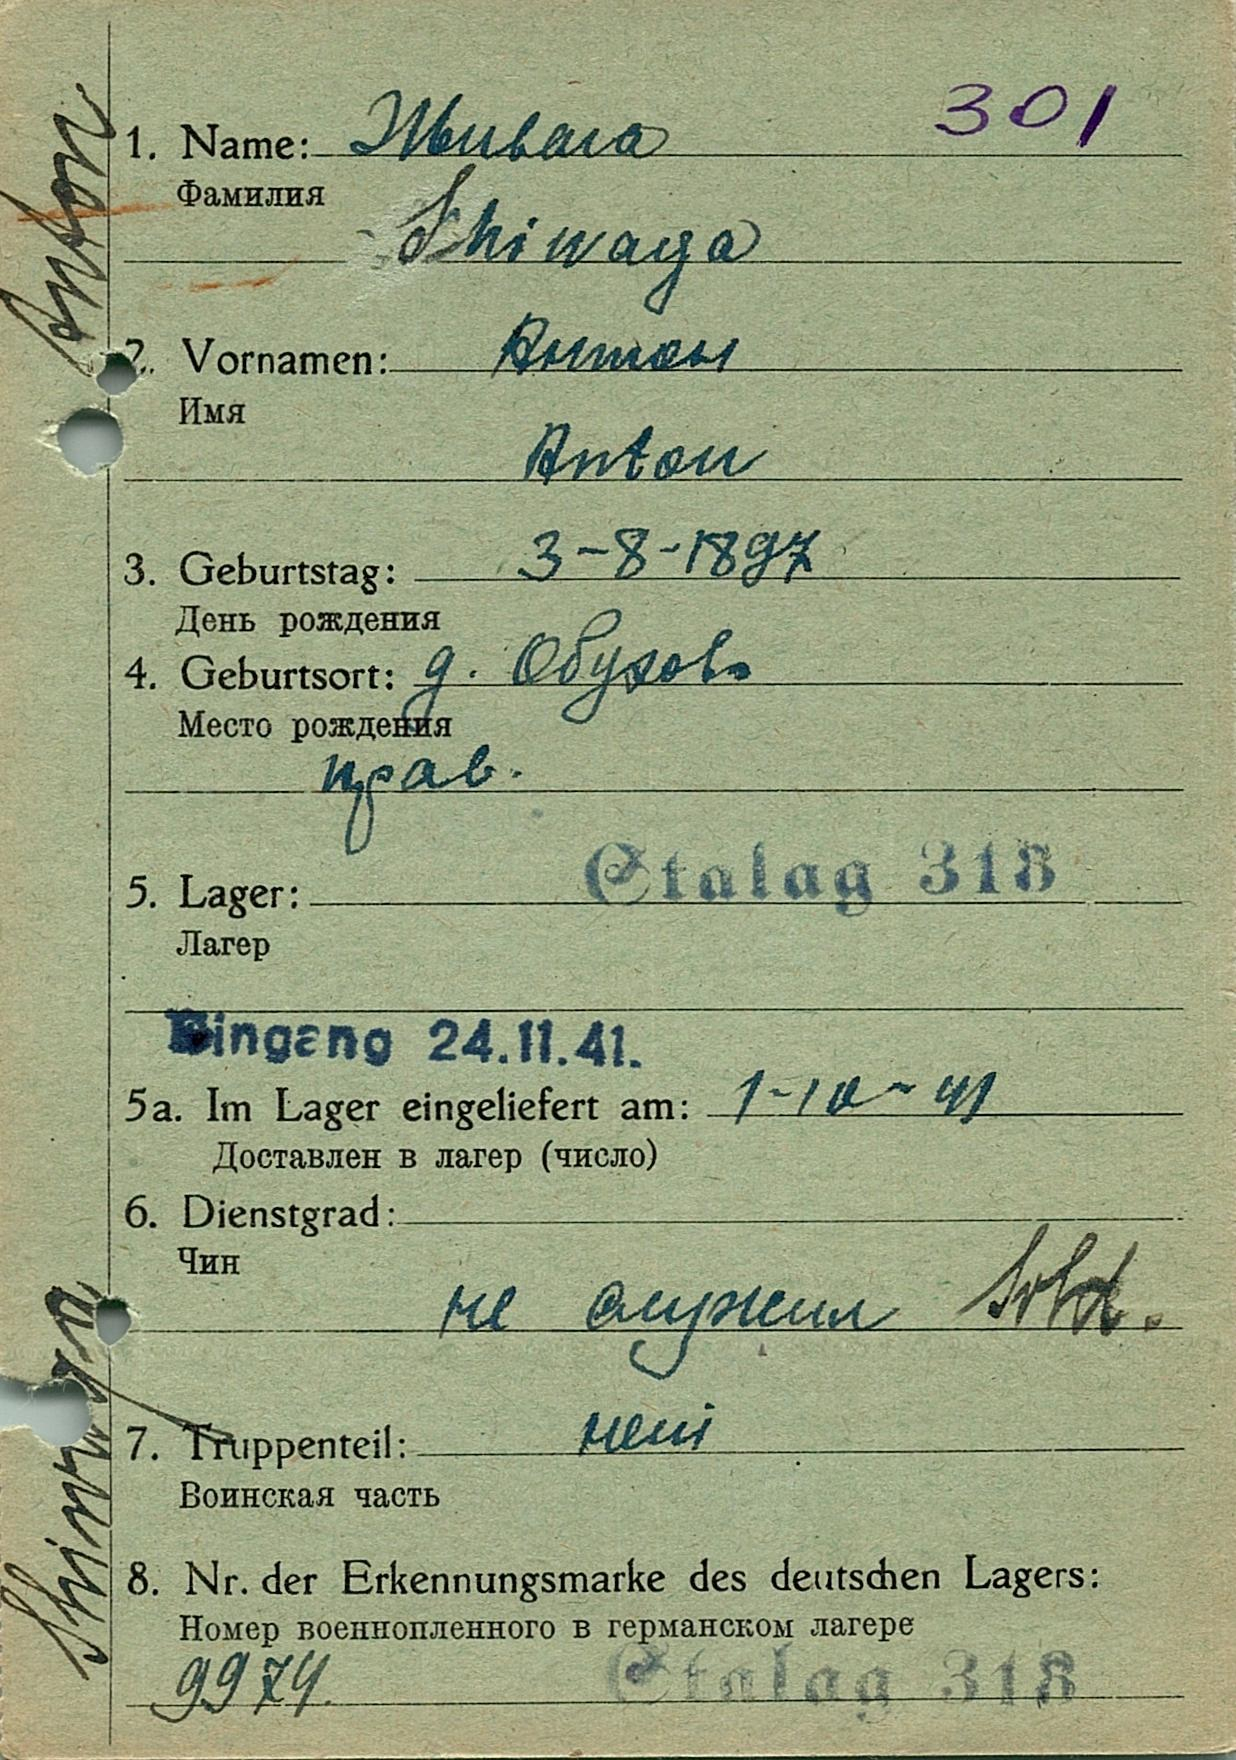 301
1. Name: Живага
Фамилия
Shiwaga
2. Vornamen: Антон
Имя
Anton
3. Geburtstag: 3-8-1897
День рождения
4. Geburtsort: д. Обухов
Место рождения
прав.
5. Lager: Stalag 318
Лагер
Eingang 24.11.41.
5a. Im Lager eingeliefert am: 1-10-41
Доставлен в лагер (число)
6. Dienstgrad:
Чин
не служил Sold.
7. Truppenteil: нет
Воинская часть
8. Nr. der Erkennungsmarke des deutschen Lagers:
Номер военнопленного в германском лагере
9974. Stalag 318
Shiwaga Anton